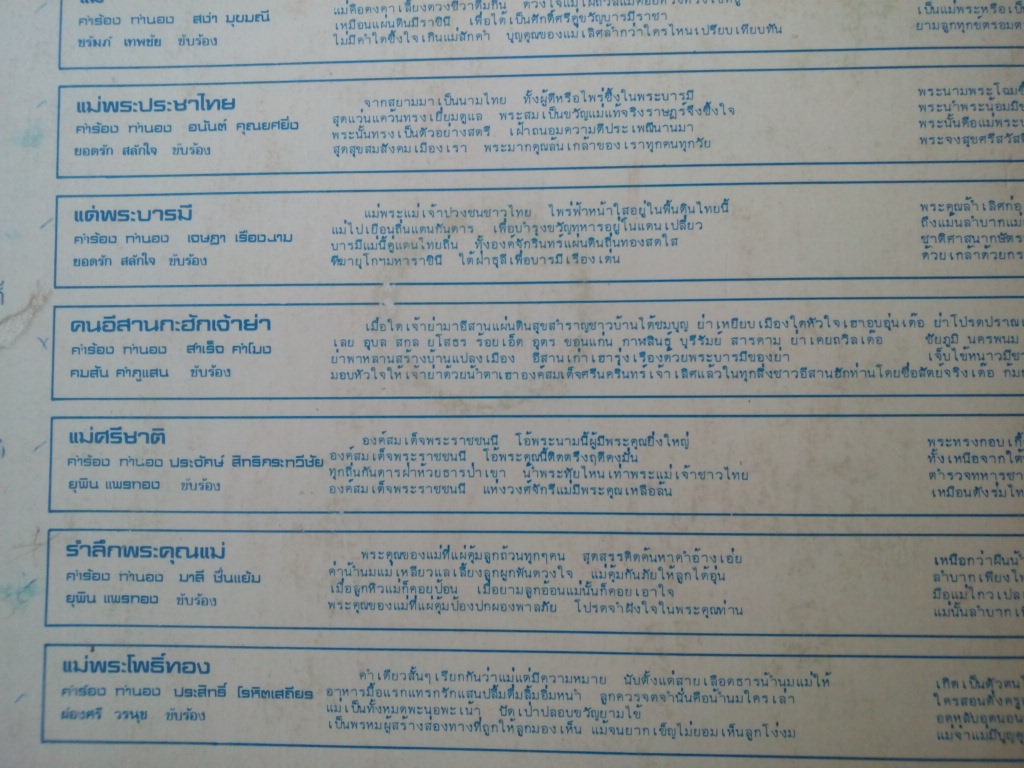 แม่
คำร้อง ทำนอง สง่า มุขมณี
ขรัมภ์ เทพชัย ขับร้อง
เหมือนแผ่นดินมีราชินี เพื่อได้เป็นศักดิ์ศรีคู่ขวัญบารมีราชา
ไม่มีคำใดซึ้งใจเกินแม่สักคำ บุญคุณของแม่เลิศล้ำกว่าใครไหนเปรียบเทียบทัน
เป็นแม่พระหรือเป็น
ยามลูกทุกข์ตรอมต
แม่พระประชาไทย
คำร้อง ทำนอง อนันต์ คุณยศยิ่ง
ยอดรัก สลักใจ ขับร้อง
จากสยามมาเป็นนามไทย ทั้งผู้ดีหรือไพร่ซึ้งในพระบารมี
สุดแว่นแคว้นทรงเยี่ยมดูแล พระสมเป็นขวัญแม่แท้จริงราษฎร์จึงซึ้งใจ
พระนั้นทรงเป็นตัวอย่างสตรี เฝ้าถนอมความดีประเพณีนานมา
สุดสุขสมสังคมเมืองเรา พระมากคุณล้นเกล้าของเราทุกคนทุกวัย
พระนามพระโฉมซึ้
พระน้ำพระน้อมมี
พระนั้นคือแม่พระ
พระจงสุขศรีสวัส
แด่พระบารมี
คำร้อง ทำนอง เจษฎา เรืองนาม
ยอดรัก สลักใจ ขับร้อง
แม่พระแม่เจ้าปวงชนชาวไทย ไพร่ฟ้าหน้าใสอยู่ในพื้นดินไทยนี้
แม่ไปเยือนถิ่นแดนกันดาร เพื่อบำรุงขวัญทหารอยู่ในแดนเปลี่ยว
บารมีแม่นี้คู่แดนไทยถิ่น ทั้งองค์จักรินทร์แผ่นดินถิ่นทองสดใส
ฑีฆายุโกฯมหาราชินี ใต้ฝ่าธุลีเพื่อบารมีเรืองเด่น
พระคุณล้ำเลิศก่อ
ถึงแม้นลำบากแม่
ชาติศาสนากษัตร
ด้วยเกล้าด้วยกร
คนอีสานกะฮักเจ้าย่า
คำร้อง ทำนอง สำเร็จ คำโมง
คมสัน คำภูแสน ขับร้อง
เมื่อใดเจ้าย่ามาอีสานแผ่นดินสุขสำราญชาวบ้านได้ชมบุญ ย่าเหยียบเมืองใดหัวใจเฮาอบอุ่นเด้อ ย่าโปรดปราณ
เลย อุบล สกล ยโสธร ร้อยเอ็ด อุดร ขอนแก่น กาฬสินธุ์ บุรีรัมย์ สารคาม ย่าเคยถวิลเด้อ ชัยภูมิ นครพนม
ย่าพาหลานสร้างบ้านแปลงเมือง อีสานเก่าเฮารุ่งเรืองด้วยพระบารมีของย่า เจ็บไข้หนาวมีขา
มอบหัวใจให้เจ้าย่าด้วยน้ำตาเฮาองค์สมเด็จศรีนครินทร์เจ้าเลิศแล้วในทุกสิ่งชาวอีสานฮักท่านโดยซื่อสัตย์จริงเด้อ ก้ม
แม่ศรีชาติ
คำร้อง ทำนอง ประจักษ์ สิทธิคระทวีชัย
ยุพิน แพรทอง ขับร้อง
องค์สมเด็จพระราชชนนี โอ้พระนามนี้ผู้มีพระคุณยิ่งใหญ่
องค์สมเด็จพระราชชนนี โอ้พระคุณนี้ติดตรึงฤดีคงมั่น
ทุกถิ่นกันดารฝ่าห้วยธารป่าเขา น้ำพระทัยไหนเท่าพระแม่เจ้าชาวไทย
องค์สมเด็จพระราชชนนี แห่งวงศ์จักรีแม่มีพระคุณเหลือล้น
พระทรงกอบเกื้
ทั้งเหนือจากใต้
ตำรวจทหารชา
เหมือนดังร่มโพ
รำลึกพระคุณแม่
คำร้อง ทำนอง มาลี ปั่นแย้ม
ยุพิน แพรทอง ขับร้อง
พระคุณของแม่ที่แผ่คุ้มลูกถ้วนทุกๆคน สุดสรรติดค้นหาคำอ้างเอ่ย
ค่าน้ำนมแม่เหลียวแลเลี้ยงลูกผูกพันดวงใจ แม่คุ้มกันภัยให้ลูกได้อุ่น
เมื่อลูกหิวแม่ก็คอยป้อน เมื่อยามลูกอ้อนแม่นั้นก็คอยเอาใจ
พระคุณของแม่ที่แผ่คุ้มป้องปกผองพาลภัย โปรดจำฝังใจในพระคุณท่าน
เหนือกว่าผืนน้ำ
ลำบากเพียงไห
มือแม่ไกวเปล
แม่นั้นลำบาก
แม่พระโพธิ์ทอง
คำร้อง ทำนอง ประสิทธิ์ โรหิตเสถียร
ผ่องศรี วรนุช ขับร้อง
คำเดียวสั้นๆเรียกกันว่าแม่แต่มีความหมาย นับตั้งแต่สายเลือดธารน้ำนมแม่ให้
อาหารมื้อแรกแทรกรักแสนปลื้มดื่มลิ้มอิ่มหนำ ลูกควรจดจำนั่นคือน้ำนมใครเล่า
แม่เป็นทั้งหมดพะนอพะเน้า ปัดเป่าปลอบขวัญยามไข้
เป็นพรหมผู้สร้างส่องทางที่ถูกให้ลูกมองเห็น แม้จนยากเข็ญไม่ยอมเห็นลูกโง่งม
เกิดเป็นตัวตน
ใครสอนตั้งครู
อดหลับอดนอน
แม่จ๋าแม่มีบุญคุ